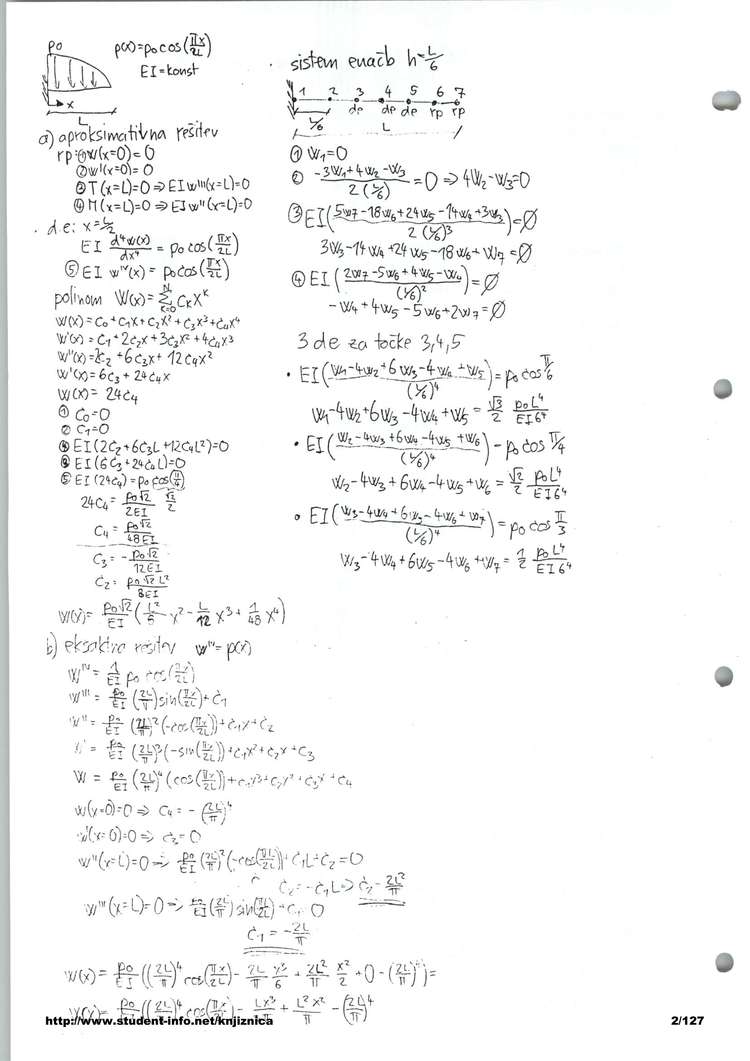 po
p(x)=po cos(πx/2L)
EI=konst
x
L
a) aproksimativna rešitev
rp: ① w(x=0)=0
② w'(x=0)=0
③ T(x=L)=0 ⇒ EIw'''(x=L)=0
④ M(x=L)=0 ⇒ EIw''(x=L)=0
d.e: x=L/2
EI d⁴w(x)/dx⁴ = po cos(πx/2L)
⑤ EI w^IV(x) = po cos(πx/2L)
polinom W(x)=Σ_{k=0}^{N} C_k X^k
W(x)=C0+C1X+C2X²+C3X³+C4X⁴
W'(x)=C1+2C2X+3C3X²+4C4X³
W''(x)=2C2+6C3X+12C4X²
W'(x)=6C3+24C4X
W(x)=24C4
① C0=0
② C1=0
④ EI(2C2+6C3L+12C4L²)=0
③ EI(6C3+24C4L)=0
⑤ EI(24C4)=po cos(π/4)
24C4=po√2/2EI √2/2
C4=po√2/48EI
C3=-po√2/12EI
C2=po√2 L²/8EI
W(x)=po√2/EI (L²/8 x² - L/12 x³ + 1/48 x⁴)
b) eksaktna rešitev w^IV=p(x)
W^IV = 1/EI po cos(πx/2L)
W''' = po/EI (2L/π) sin(πx/2L)+C1
W'' = po/EI (2L/π)²(-cos(πx/2L))+C1x+C2
W' = po/EI (2L/π)³(-sin(πx/2L))+C1x²+C2x+C3
W = po/EI (2L/π)⁴(cos(πx/2L))+C1x³+C2x²+C3x+C4
W(x=0)=0 ⇒ C4=-(2L/π)⁴
w'(x=0)=0 ⇒ C3=0
W''(x=L)=0 ⇒ po/EI (2L/π)²(-cos(πL/2L))+C1L+C2=0
C2=-C1L ⇒ C2=2L²/π
W'''(x=L)=0 ⇒ po/EI (2L/π) sin(πL/2L)+C1 0
C1=-2L/π
W(x)=po/EI ((2L/π)⁴ cos(πx/2L) - 2L/π x³/6 + 2L²/π x²/2 + 0 - (2L/π)⁴)=
W(x)=po/EI ((2L/π)⁴ cos(πx/2L) - Lx³/π + L²x²/π - (2L/π)⁴
sistem enačb h=L/6
1 2 3 4 5 6 7
de de de rp rp
L/6
L
① W1=0
② (-3W1+4W2-W3)/2(L/6)=0 ⇒ 4W2-W3=0
③ EI((5W7-18W6+24W5-14W4+3W3)/2(L/6)³)=0
3W3-14W4+24W5-18W6+W7=0
④ EI((2W7-5W6+4W5-W4)/(L/6)²)=0
-W4+4W5-5W6+2W7=0
3 de za točke 3,4,5
• EI((W1-4W2+6W3-4W4+W5)/(L/6)⁴)=po cos π/6
W1-4W2+6W3-4W4+W5=√3/2 poL⁴/EI6⁴
• EI((W2-4W3+6W4-4W5+W6)/(L/6)⁴)-po cos π/4
W2-4W3+6W4-4W5+W6=√2/2 poL⁴/EI6⁴
• EI((W3-4W4+6W5-4W6+W7)/(L/6)⁴)=po cos π/3
W3-4W4+6W5-4W6+W7=1/2 poL⁴/EI6⁴
http://www.student-info.net/knjiznica
2/127